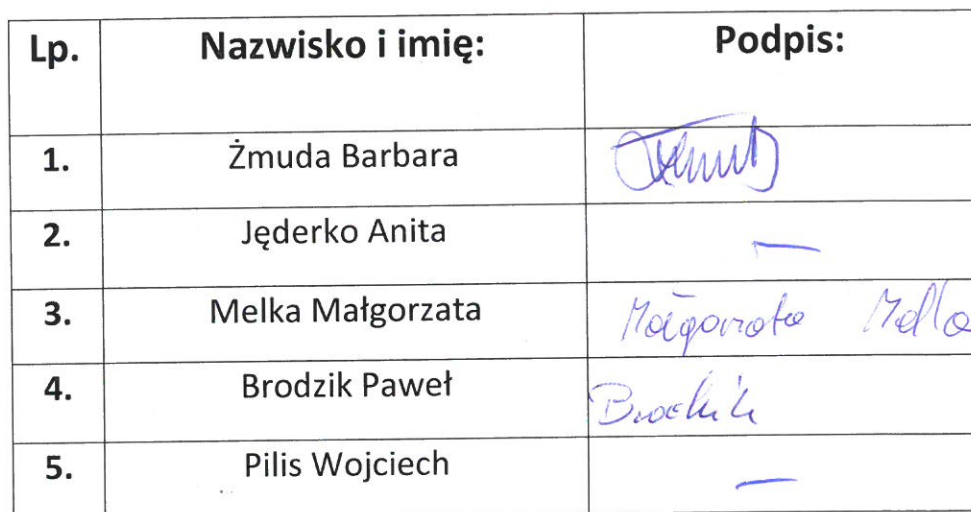 Lp. Nazwisko i imię: Podpis:
1. Żmuda Barbara
2. Jęderko Anita —
3. Melka Małgorzata Małgorzata Melka
4. Brodzik Paweł Brodzik
5. Pilis Wojciech —